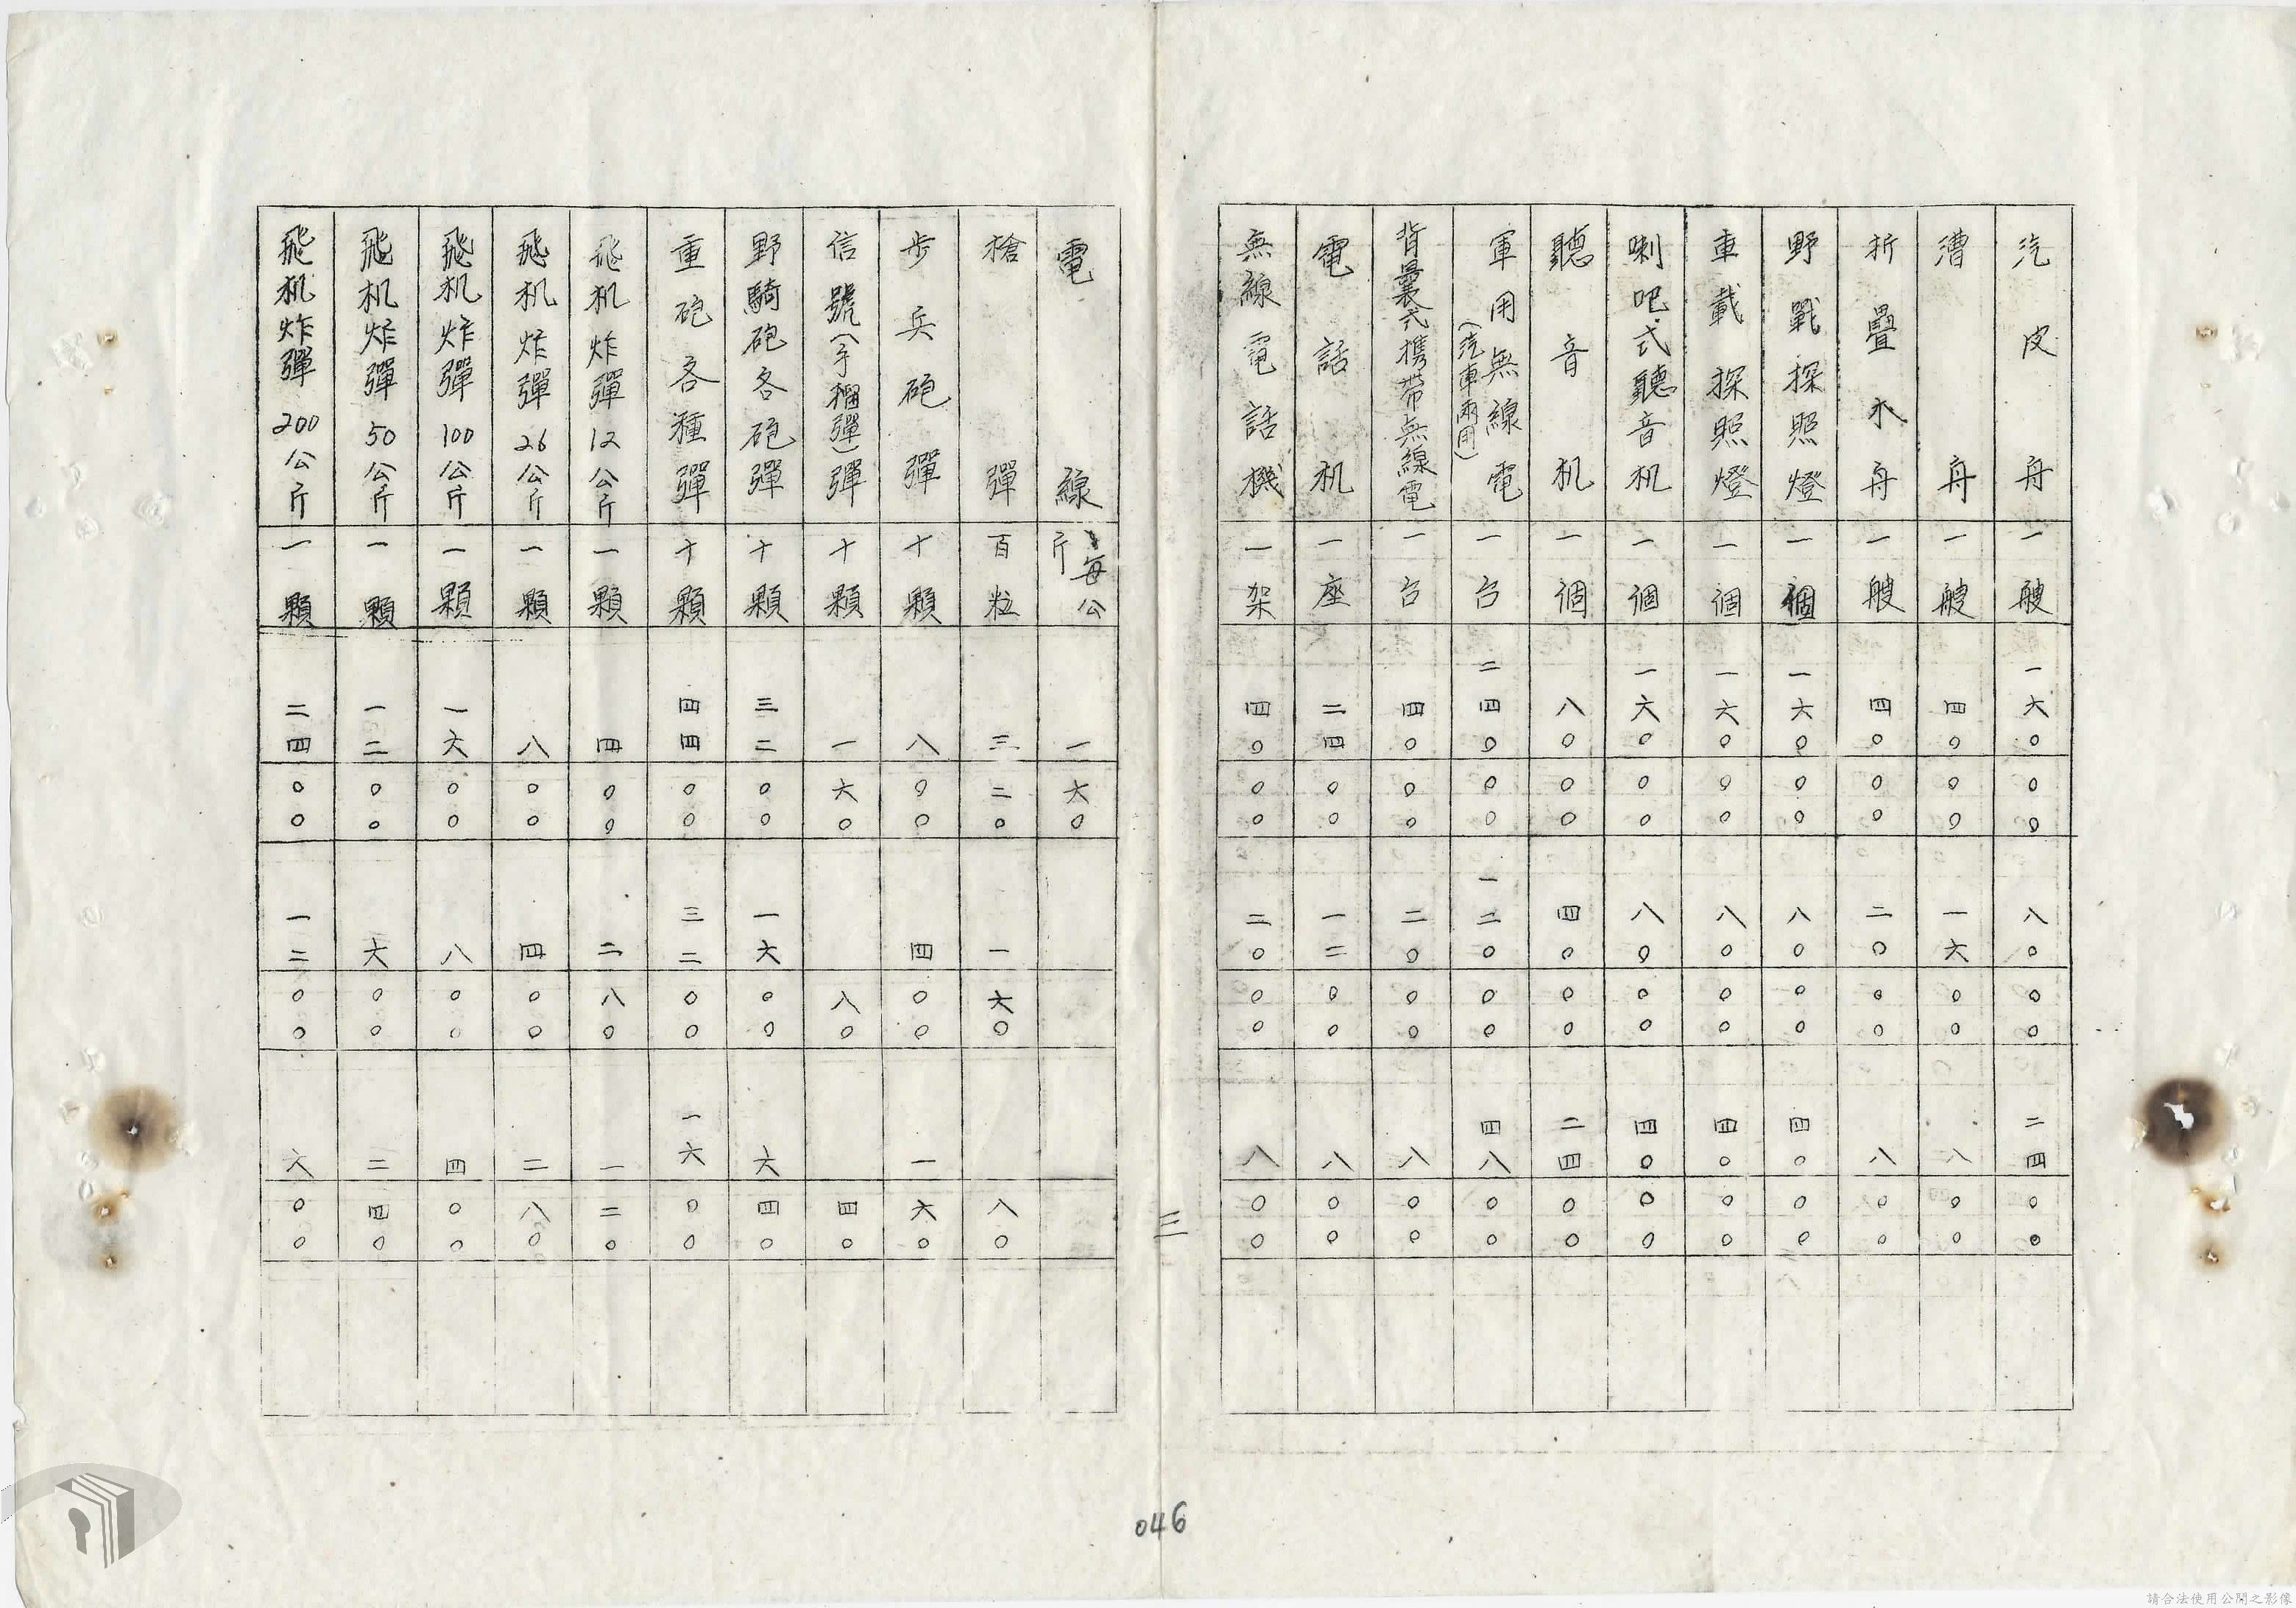 汽皮舟 一艘 一六〇 〇〇 八〇 〇〇 二四 〇〇
漕舟 一艘 四〇 〇〇 一六 〇〇 八 〇〇
折疊木舟 一艘 四〇 〇〇 二〇 〇〇 八 〇〇
野戰探照燈 一個 一六〇 〇〇 八〇 〇〇 四〇 〇〇
車載探照燈 一個 一六〇 〇〇 八〇 〇〇 四〇 〇〇
喇吧式聽音机 一個 一六〇 〇〇 八〇 〇〇 四〇 〇〇
聽音机 一個 八〇 〇〇 四〇 〇〇 二四 〇〇
軍用無線電(汽車兩用) 一台 二四〇 〇〇 一二〇 〇〇 四八 〇〇
背曩式攜帶無線電 一台 四〇 〇〇 二〇 〇〇 八 〇〇
電話机 一座 二四 〇〇 一二 〇〇 八 〇〇
無線電話機 一架 四〇 〇〇 二〇 〇〇 八 〇〇
三
電線 每公斤 一 六〇
槍彈 百粒 三 二〇 一 六〇 八〇
步兵砲彈 十顆 八 〇〇 四 〇〇 一 六〇
信號(手榴彈)彈 十顆 一 六〇 八〇 四〇
野騎砲各砲彈 十顆 三二 〇〇 一六 〇〇 六 四〇
重砲各種彈 十顆 四四 〇〇 三二 〇〇 一六 〇〇
飛机炸彈12公斤 一顆 四 〇〇 二 八〇 一 二〇
飛机炸彈26公斤 一顆 八 〇〇 四 〇〇 二 八〇
飛机炸彈100公斤 一顆 一六 〇〇 八 〇〇 四 〇〇
飛机炸彈50公斤 一顆 一二 〇〇 六 〇〇 三 四〇
飛机炸彈200公斤 一顆 二四 〇〇 一二 〇〇 六 〇〇
046
請合法使用公開之影像